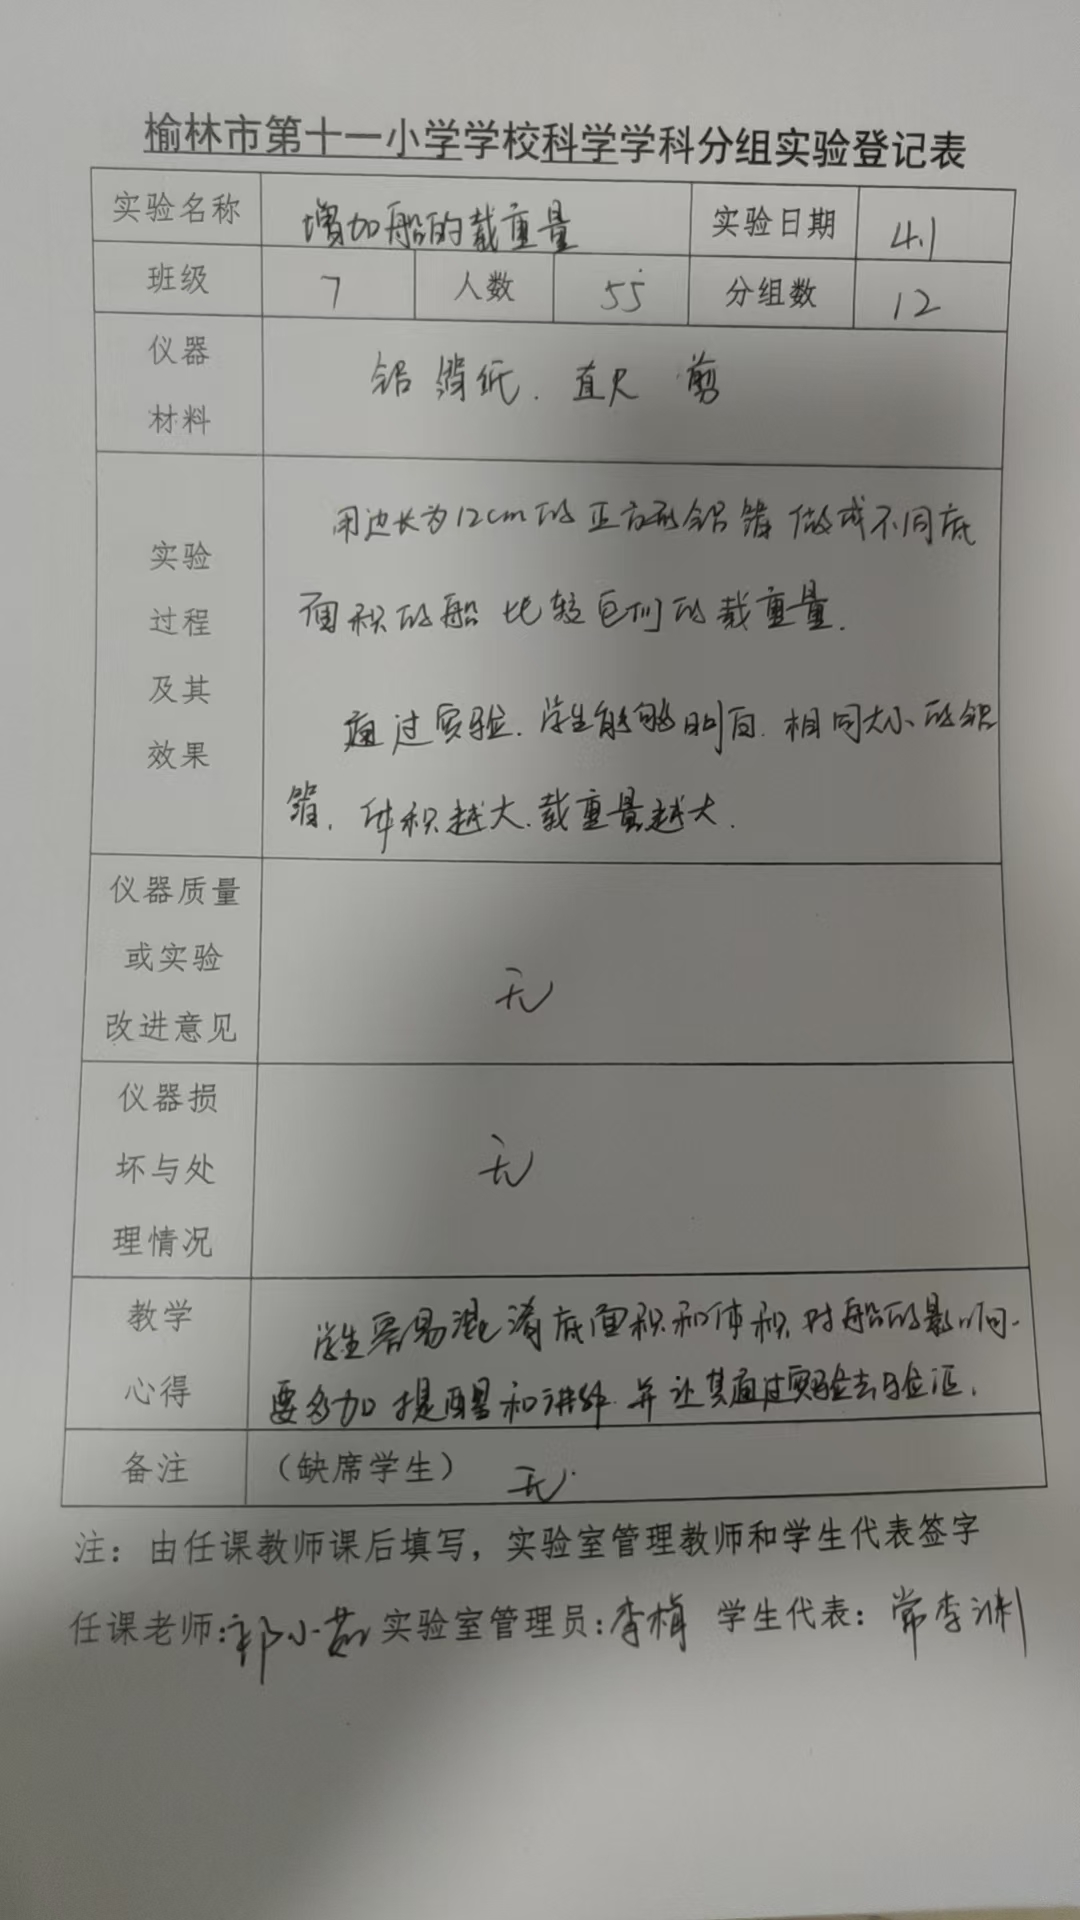 榆林市第十一小学学校科学学科分组实验登记表
实验名称 增加船的载重量 实验日期 4.1
班级 7 人数 55 分组数 12
仪器
材料
铝箔纸. 直尺 剪
实验
过程
及其
效果
用边长为12cm的正方形铝箔做成不同底
面积的船 比较它们的载重量.
通过实验. 学生能够明白. 相同大小的铝
箔. 体积越大. 载重量越大.
仪器质量
或实验
改进意见
无
仪器损
坏与处
理情况
无
教学
心得
学生容易混淆底面积和体积对船的影响.
要多加提醒和讲解. 并让其通过实验去验证.
备注 (缺席学生) 无
注：由任课教师课后填写，实验室管理教师和学生代表签字
任课老师: 小茹 实验室管理员: 李楠 学生代表： 常李